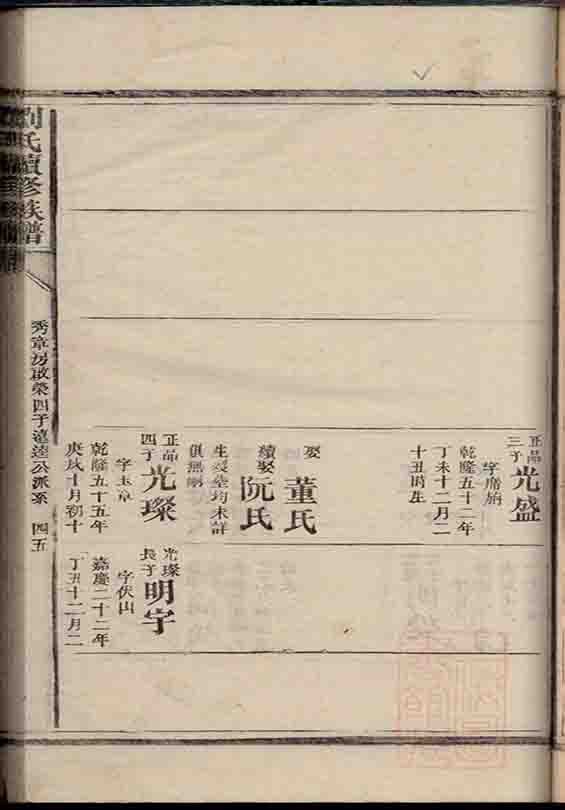 正品三子光盛
字席納
乾隆五十二年
丁未十二月二
十丑時生
娶董氏
續娶阮氏
生歿塋均未詳
俱無嗣
正品四子光璨
字玉章
乾隆五十五年
庚戌十月初十
光璨長子明宇
字伏山
嘉慶二十二年
丁丑十二月二
劉氏續修族譜
秀章房啟榮四子遠達公派系 四五